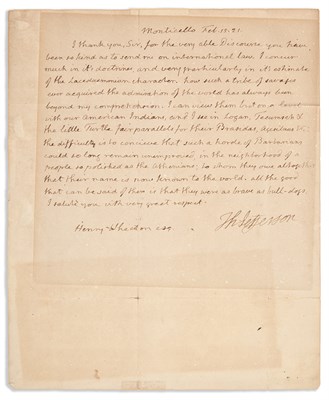 Monticello Feb. 13. 21.
I thank you, Sir, for the very able Discourse you have
been so kind as to send me on international law. I concur
much in it's doctrines, and very particularly in it's estimate
of the Lacedaemonian character. how such a tribe of savages
ever acquired the admiration of the world has always been
beyond my comprehension. I can view them but on a level
with our American Indians, and I see in Logan, Tecumseh &
the little Turtle fair parallels for their Brasidas, Agesilaus &c.
the difficulty is to concieve that such a horde of Barbarians
could so long remain unimproved in the neighborhood of a
people so polished as the Athenians; to whom they owe altogether
that their name is now known to the world. all the good
that can be said of them is that they were as brave as bull-dogs.
I salute you with very great respect.
Th Jefferson
Henry Wheaton esq.